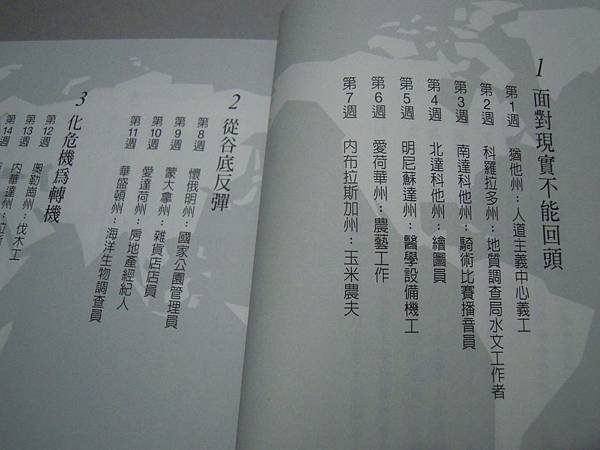 1 面對現實不能回頭
第1週 猶他州：人道主義中心義工
第2週 科羅拉多州：地質調查局水文工作者
第3週 南達科他州：騎術比賽播音員
第4週 北達科他州：繪圖員
第5週 明尼蘇達州：醫學設備機工
第6週 愛荷華州：農藝工作
第7週 內布拉斯加州：玉米農夫
2 從谷底反彈
第8週 懷俄明州：國家公園管理員
第9週 蒙大拿州：雜貨店店員
第10週 愛達荷州：房地產經紀人
第11週 華盛頓州：海洋生物調查員
3 化危機為轉機
第12週 奧勒岡州：伐木工
第13週 內華達州：
第14週